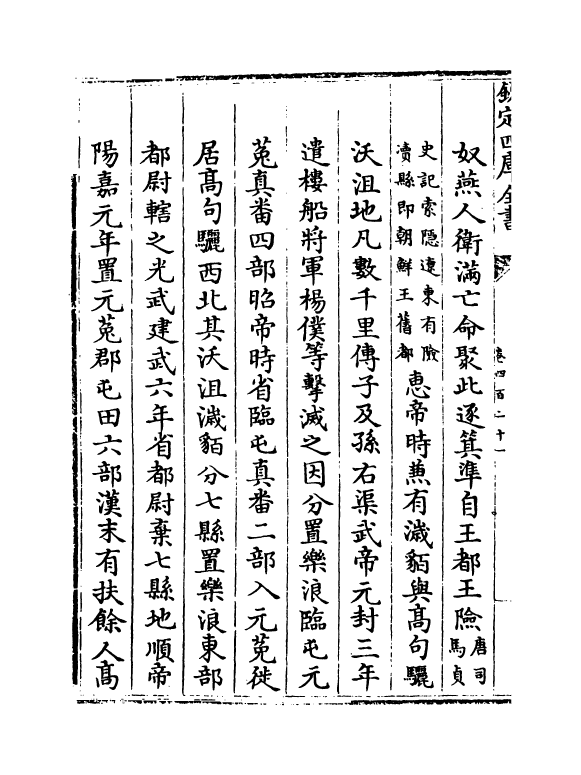 欽定四庫全書
卷四百二十一
奴燕人衛滿亡命聚此逐箕準自王都王險唐司馬貞
史記索隱遼東有險瀆縣即朝鮮王舊都惠帝時兼有濊貊與高句驪
沃沮地凡數千里傳子及孫右渠武帝元封三年
遣樓船將軍楊僕等擊滅之因分置樂浪臨屯元
菟真番四部昭帝時省臨屯真番二部入元菟徙
居高句驪西北其沃沮濊貊分七縣置樂浪東部
都尉轄之光武建武六年省都尉棄七縣地順帝
陽嘉元年置元菟郡屯田六部漢末有扶餘人高